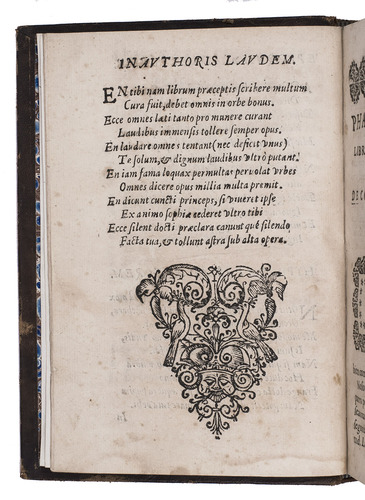 IN AVTHORIS LAVDEM.
EN tibi nam librum præceptis scribere multum
Cura fuit, debet omnis in orbe bonus.
Ecce omnes lati tanto pro munere curant
Laudibus immensis tollere semper opus.
En laudare omnes tentant (nec deficit vnus)
Te solum, & dignum laudibus vltrò putant.
En iam fama loquax permultas peruolat vrbes
Omnes dicere opus millia multa premit.
En dicunt cuncti princeps, si viueret ipse
Ex animo sophiæ cederet vltro tibi
Ecce silent docti præclara canunt què silendo
Facta tua, & tollunt astra sub alta opera.
PHA
LIBRI
DE CO
In